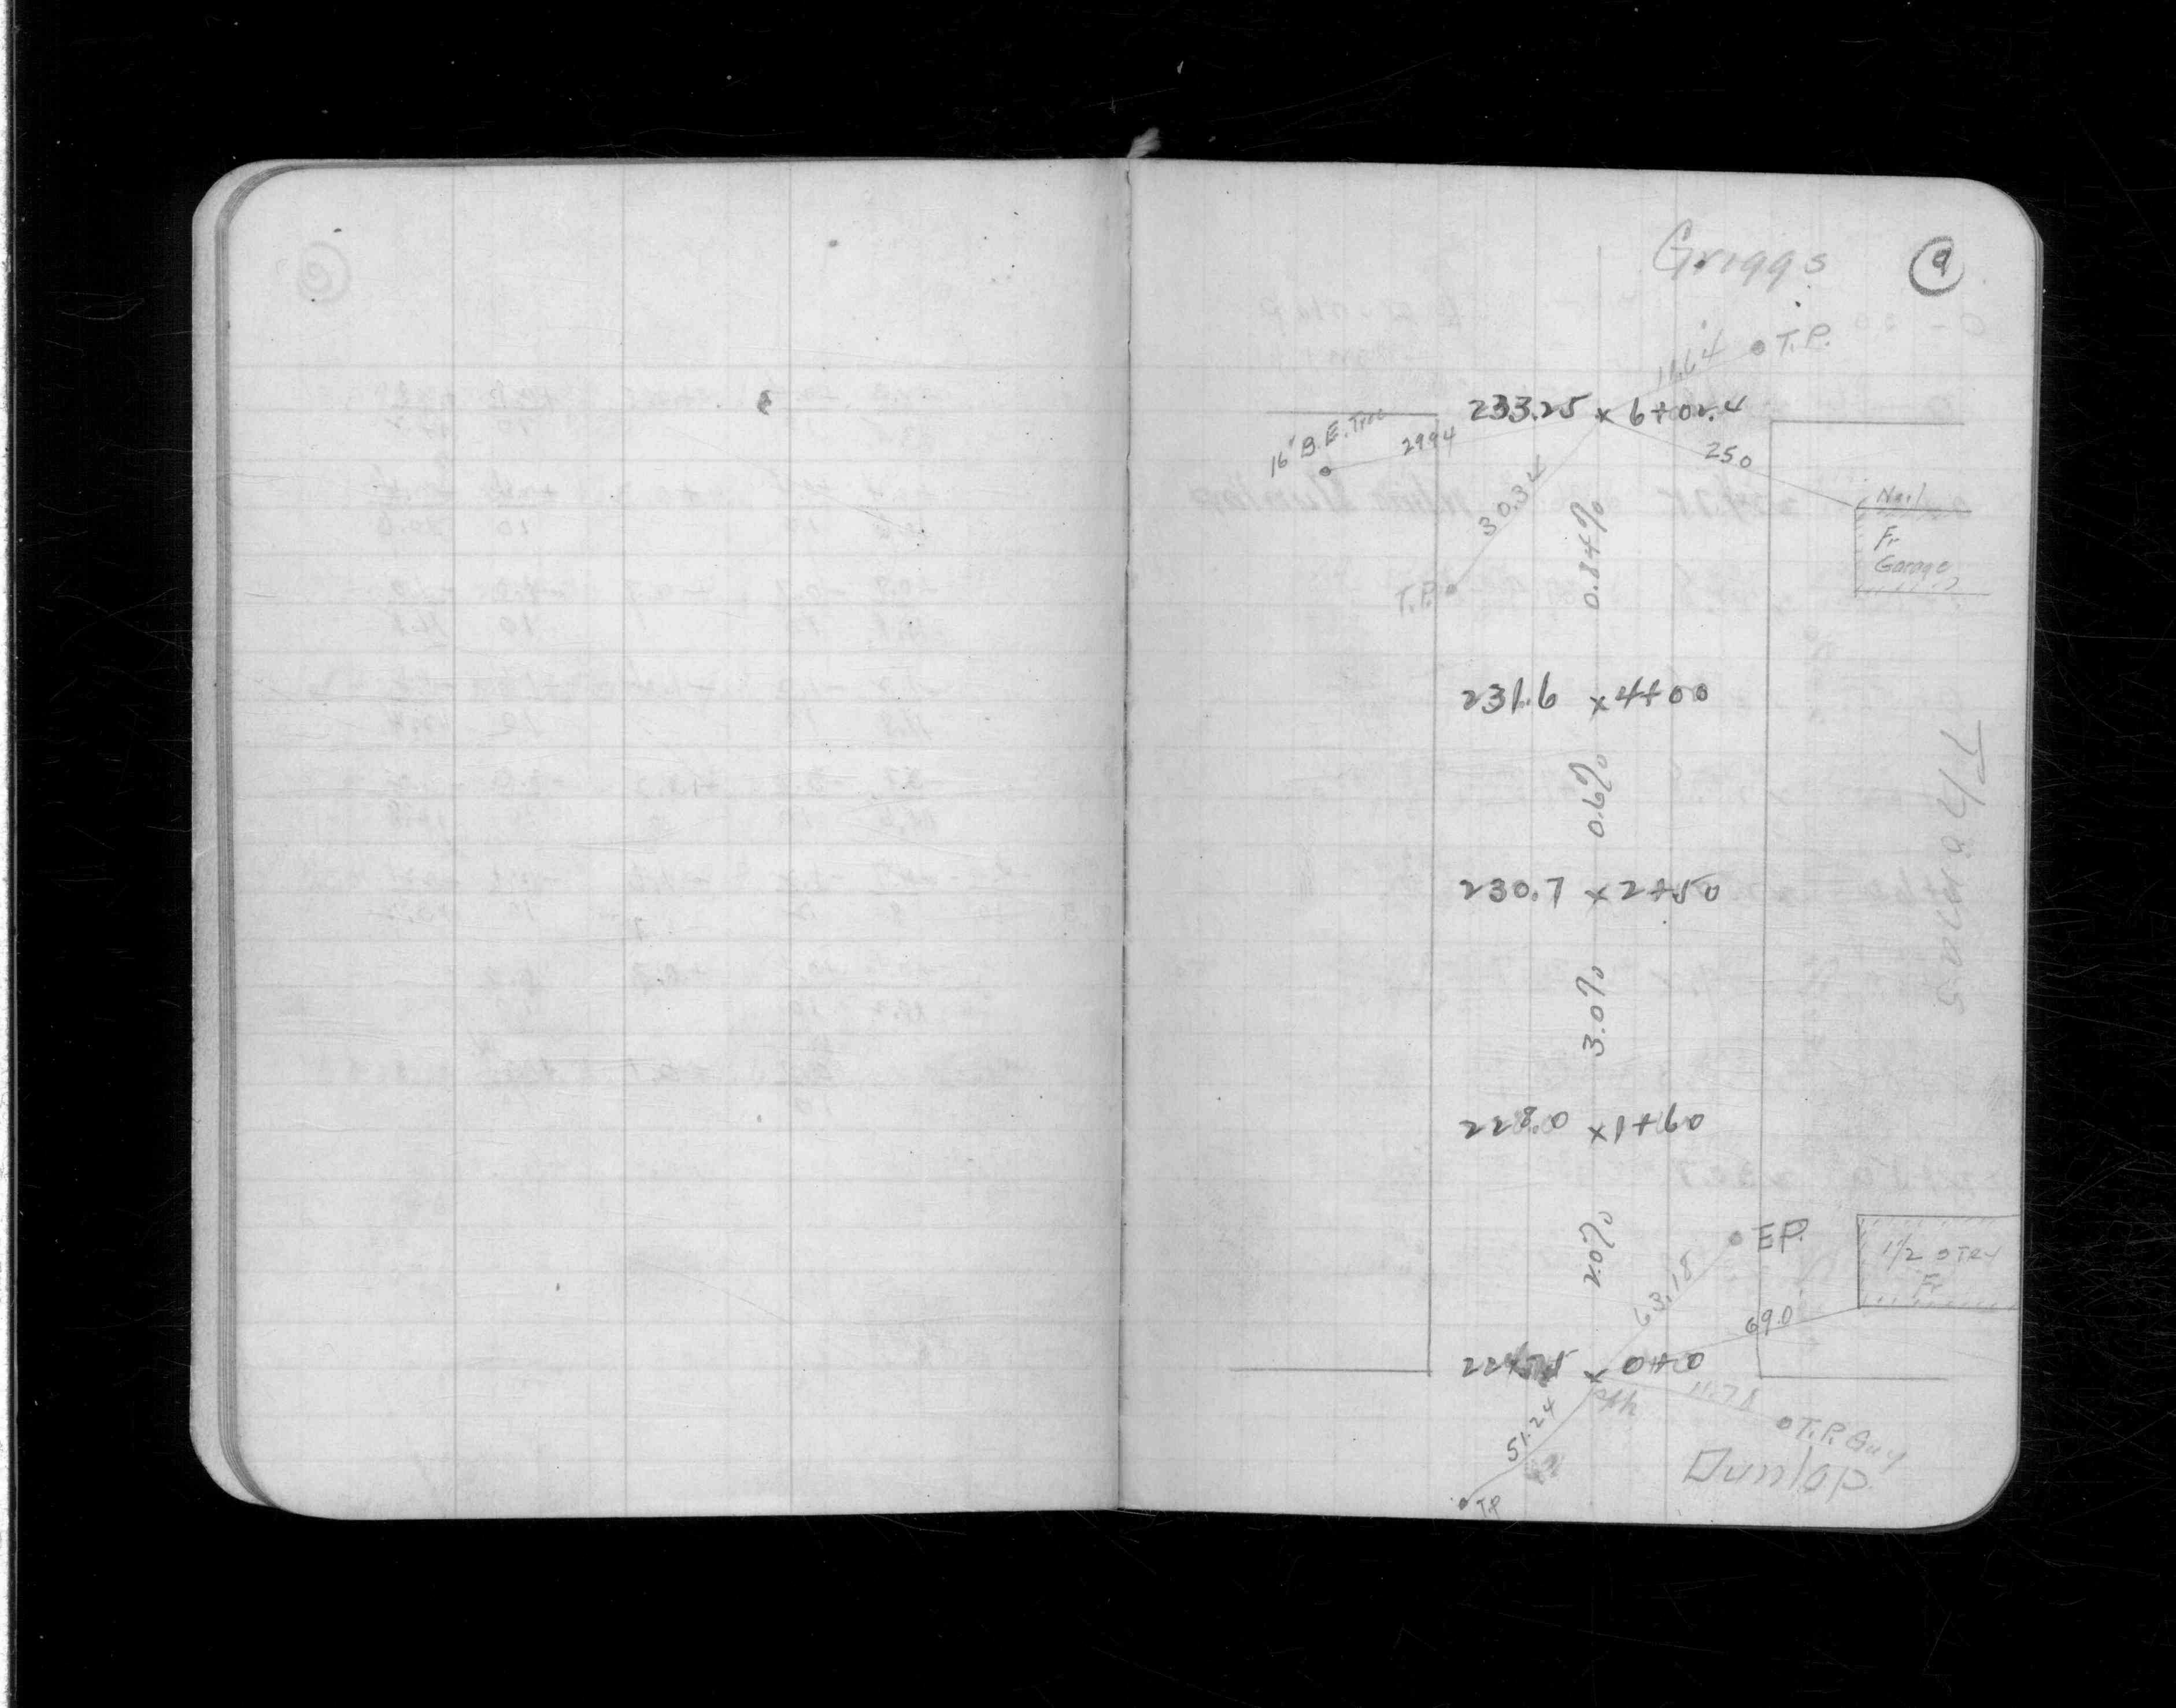 Griggs
9
T.P.
16.64
233.25 x 6+02.4
16" B.E. Tree
29.94
25.0
30.34
Nail
Fr
Garage
0.84%
T.P.
231.6 x 4+00
0.6%
Thomas
230.7 x 2+50
3.0%
228.0 x 1+60
2.0%
E.P.
1 1/2 STRY
Fr
63.18
69.0
x 0+0
11.78
51.24
T.P. Guy
Dunlap
T.P